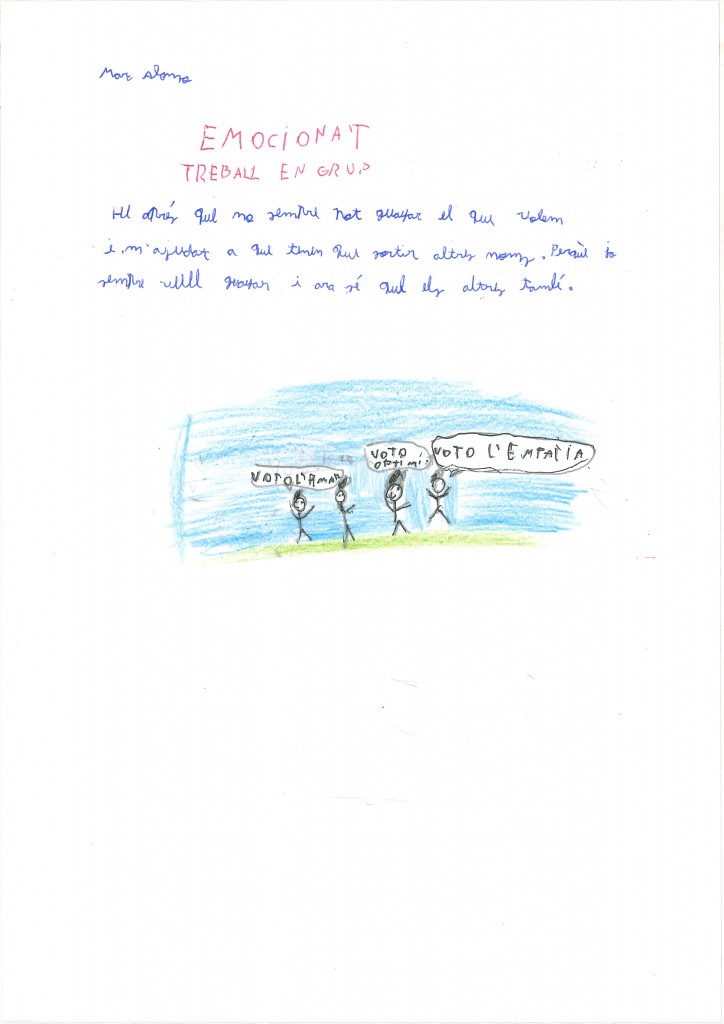 Marc Alonso
EMOCIONA'T
TREBALL EN GRUP
He après que no sempre pot guayar el que volem
i m'ajudat a que tenen que sortir altres noms. Perquè jo
sempre vull guayar i ara sé que els altres també.
VOTO L'AMA
VOTO
OPTIMI
VOTO L'EMPATIA